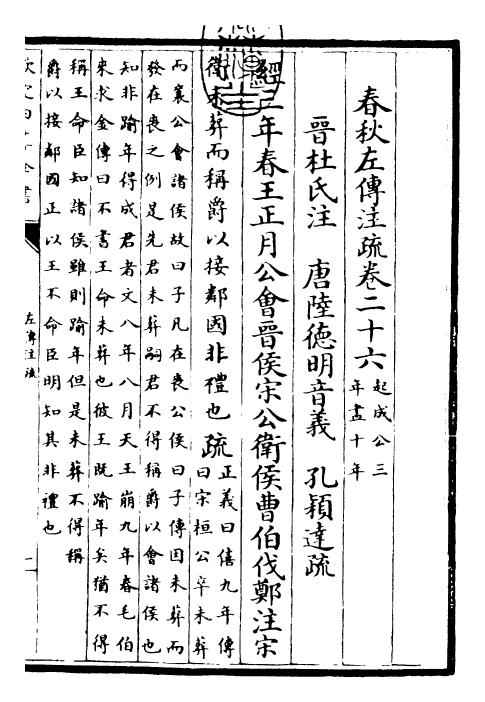 春秋左傳注疏卷二十六
起成公三
年盡十年
晉杜氏注　唐陸德明音義　孔穎達疏
經三年春王正月公會晉侯宋公衛侯曹伯伐鄭注宋
衛未葬而稱爵以接鄰國非禮也疏
正義曰僖九年傳
曰宋桓公卒未葬
而襄公會諸侯故曰子凡在喪公侯曰子傳因未葬而
發在喪之例是先君未葬嗣君不得稱爵以會諸侯也
知非踰年得成君者文八年八月天王崩九年春毛伯
來求金傳曰不書王命未葬也彼王既踰年矣猶不得
稱王命臣知諸侯雖則踰年但是未葬不得稱
爵以接鄰國正以王不命臣明知其非禮也
欽定四庫全書
左傳注疏
一